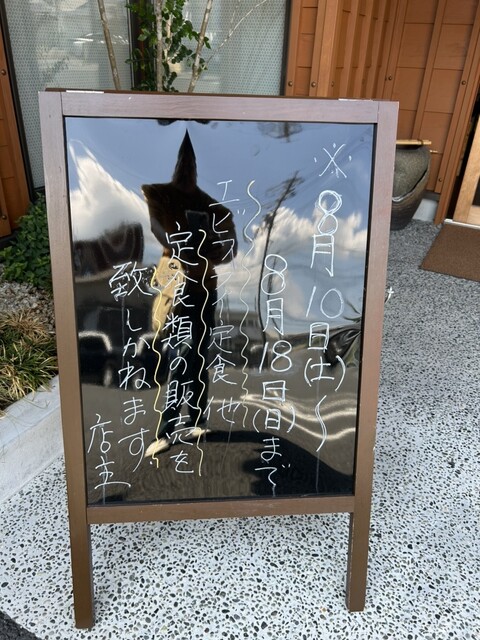 ※8月10日(土)〜
8月18日(日)まで
エビフライ定食他
定食類の販売を
致しかねます。
店主